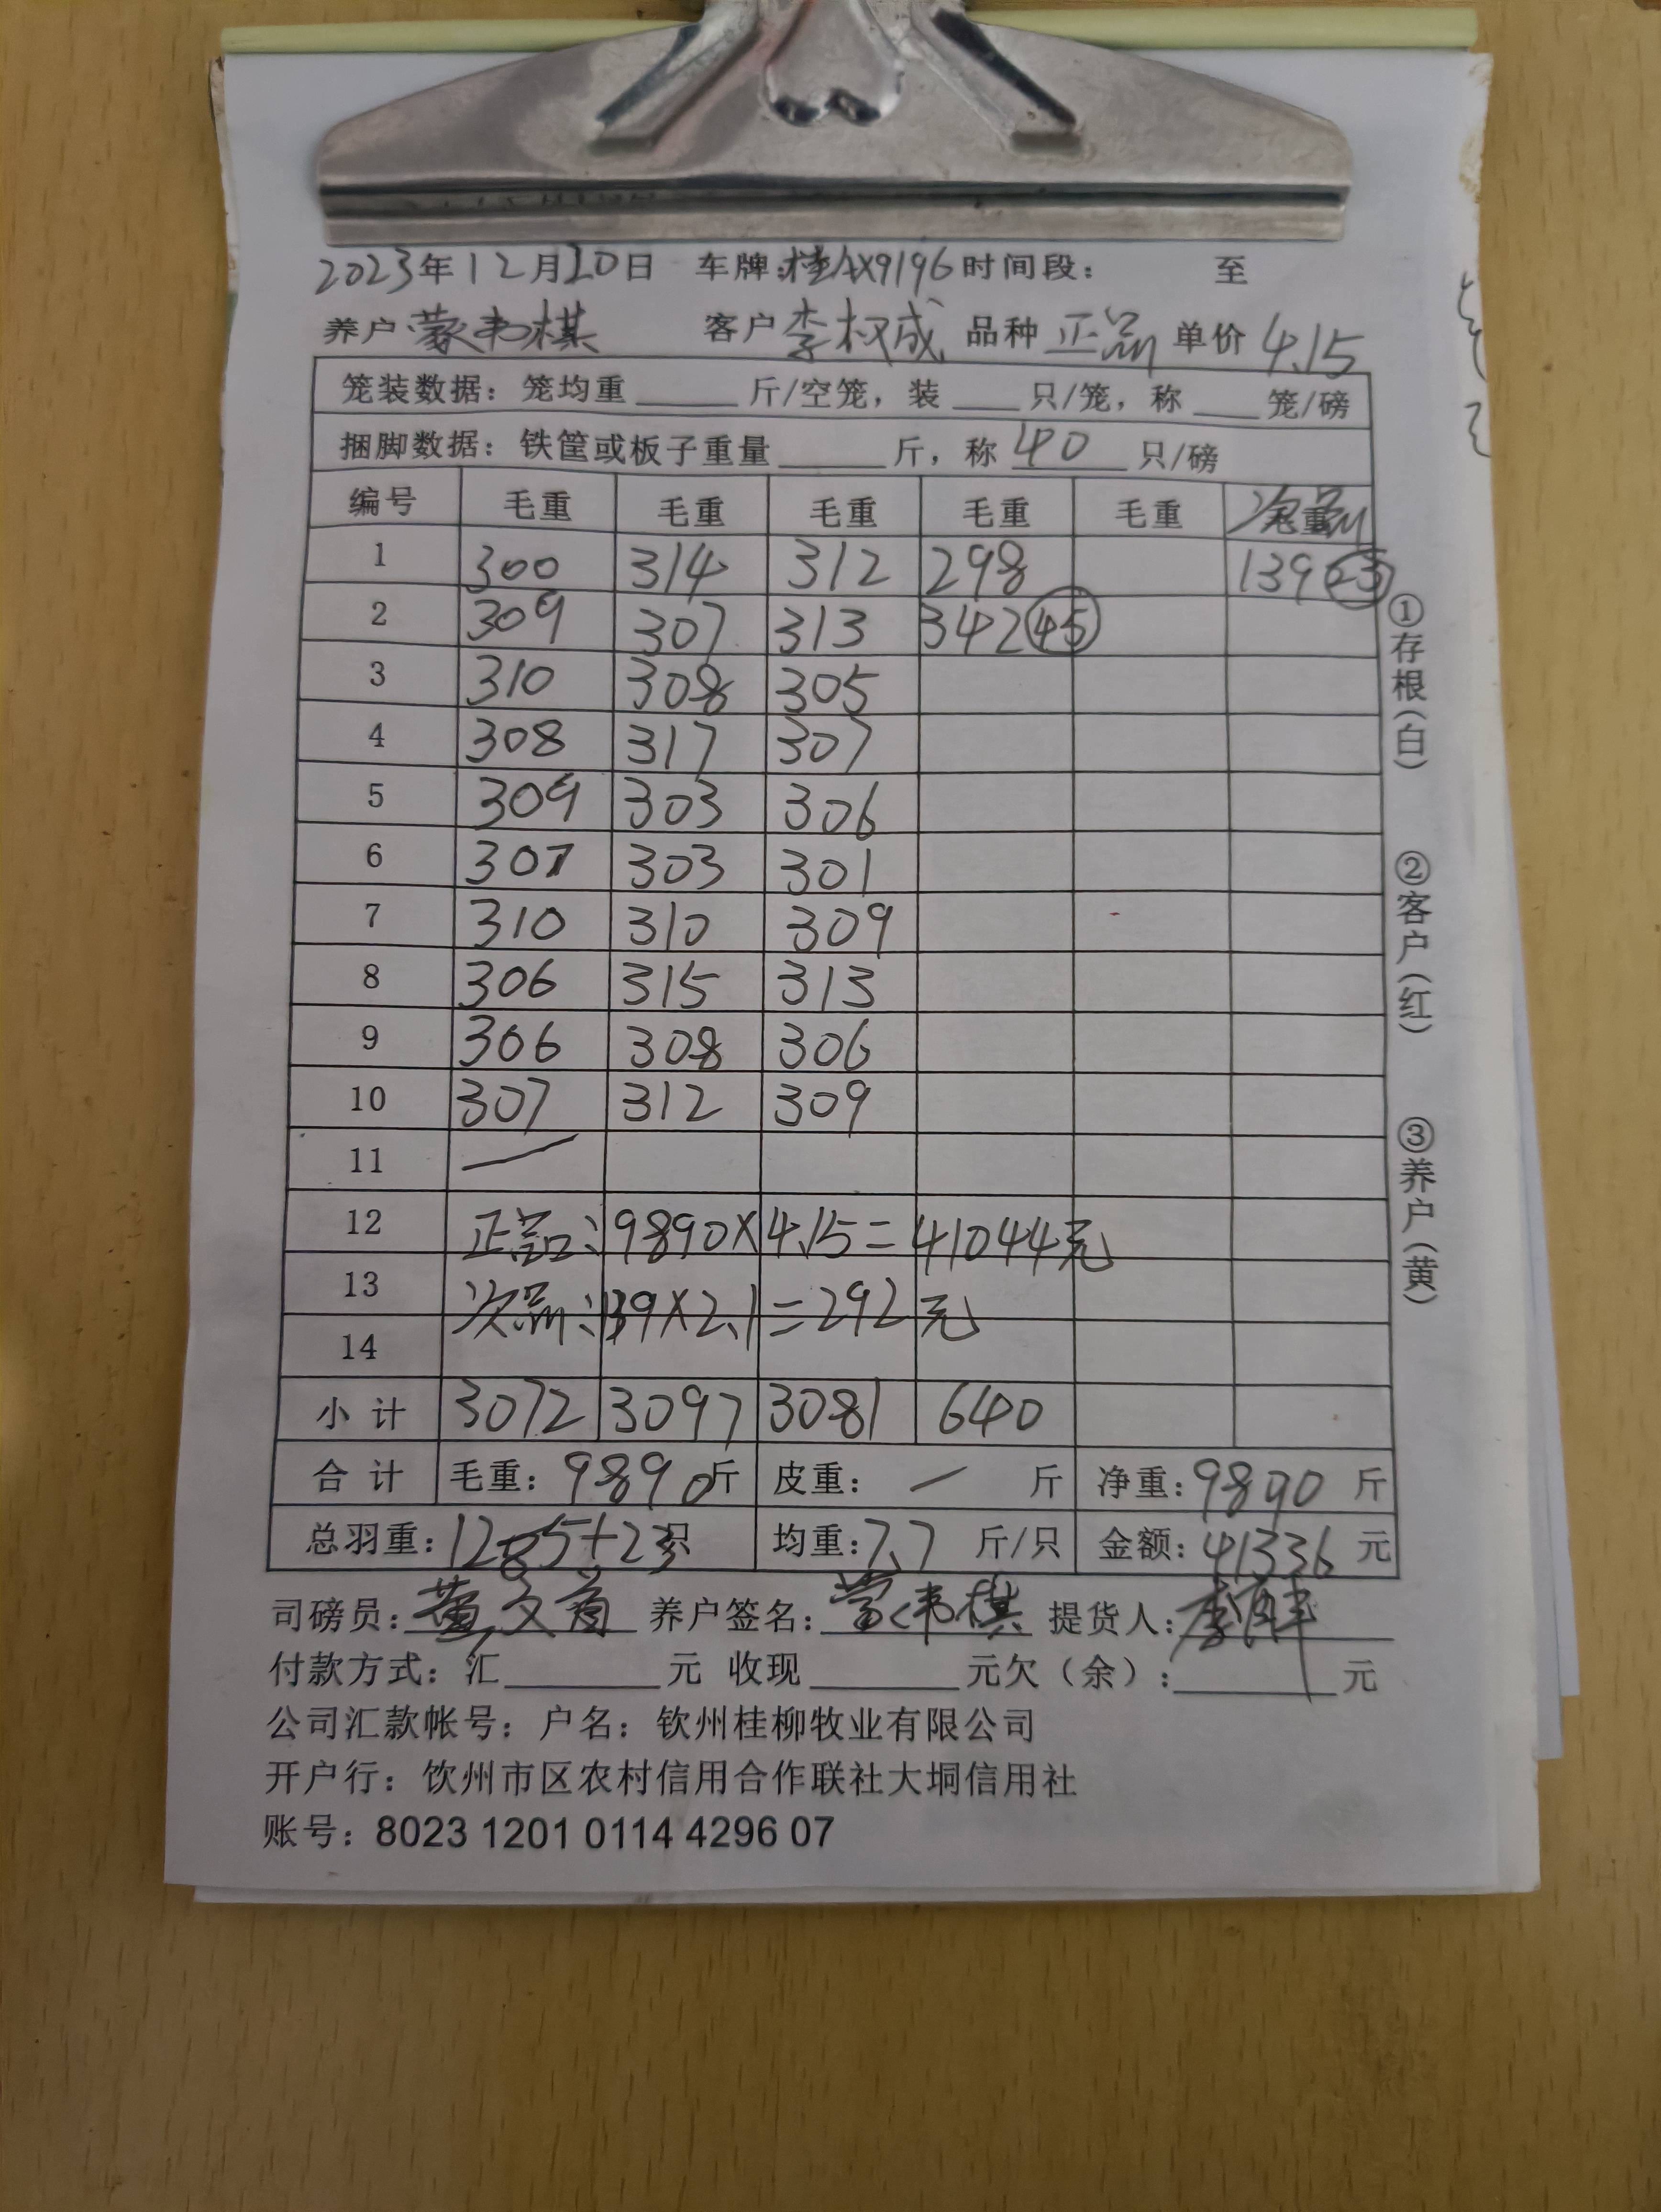 2023年12月20日 车牌:桂AX9196 时间段: 至
养户 蒙韦棋 客户 李权成 品种 正品 单价 4.15
笼装数据: 笼均重 斤/空笼, 装 只/笼, 称 笼/磅
捆脚数据: 铁筐或板子重量 斤, 称 40 只/磅
编号 毛重 毛重 毛重 毛重 毛重 次品
1 300 314 312 298 139 23
2 309 307 313 342 45
3 310 308 305
4 308 317 307
5 309 303 306
6 307 303 301
7 310 310 309
8 306 315 313
9 306 308 306
10 307 312 309
11 —
12 正品: 9890×4.15=41044元
13 次品: 139×2.1=292元
14
小计 3072 3097 3081 640
合计 毛重: 9890斤 皮重: — 斤 净重: 9890 斤
总羽重: 1285+23只 均重: 7.7 斤/只 金额: 41336 元
司磅员: 养户签名: 蒙伟棋 提货人:
付款方式: 汇 元 收现 元欠(余): 元
公司汇款帐号: 户名: 钦州桂柳牧业有限公司
开户行: 饮州市区农村信用合作联社大垌信用社
账号: 8023 1201 0114 4296 07
①存根(白)
②客户(红)
③养户(黄)